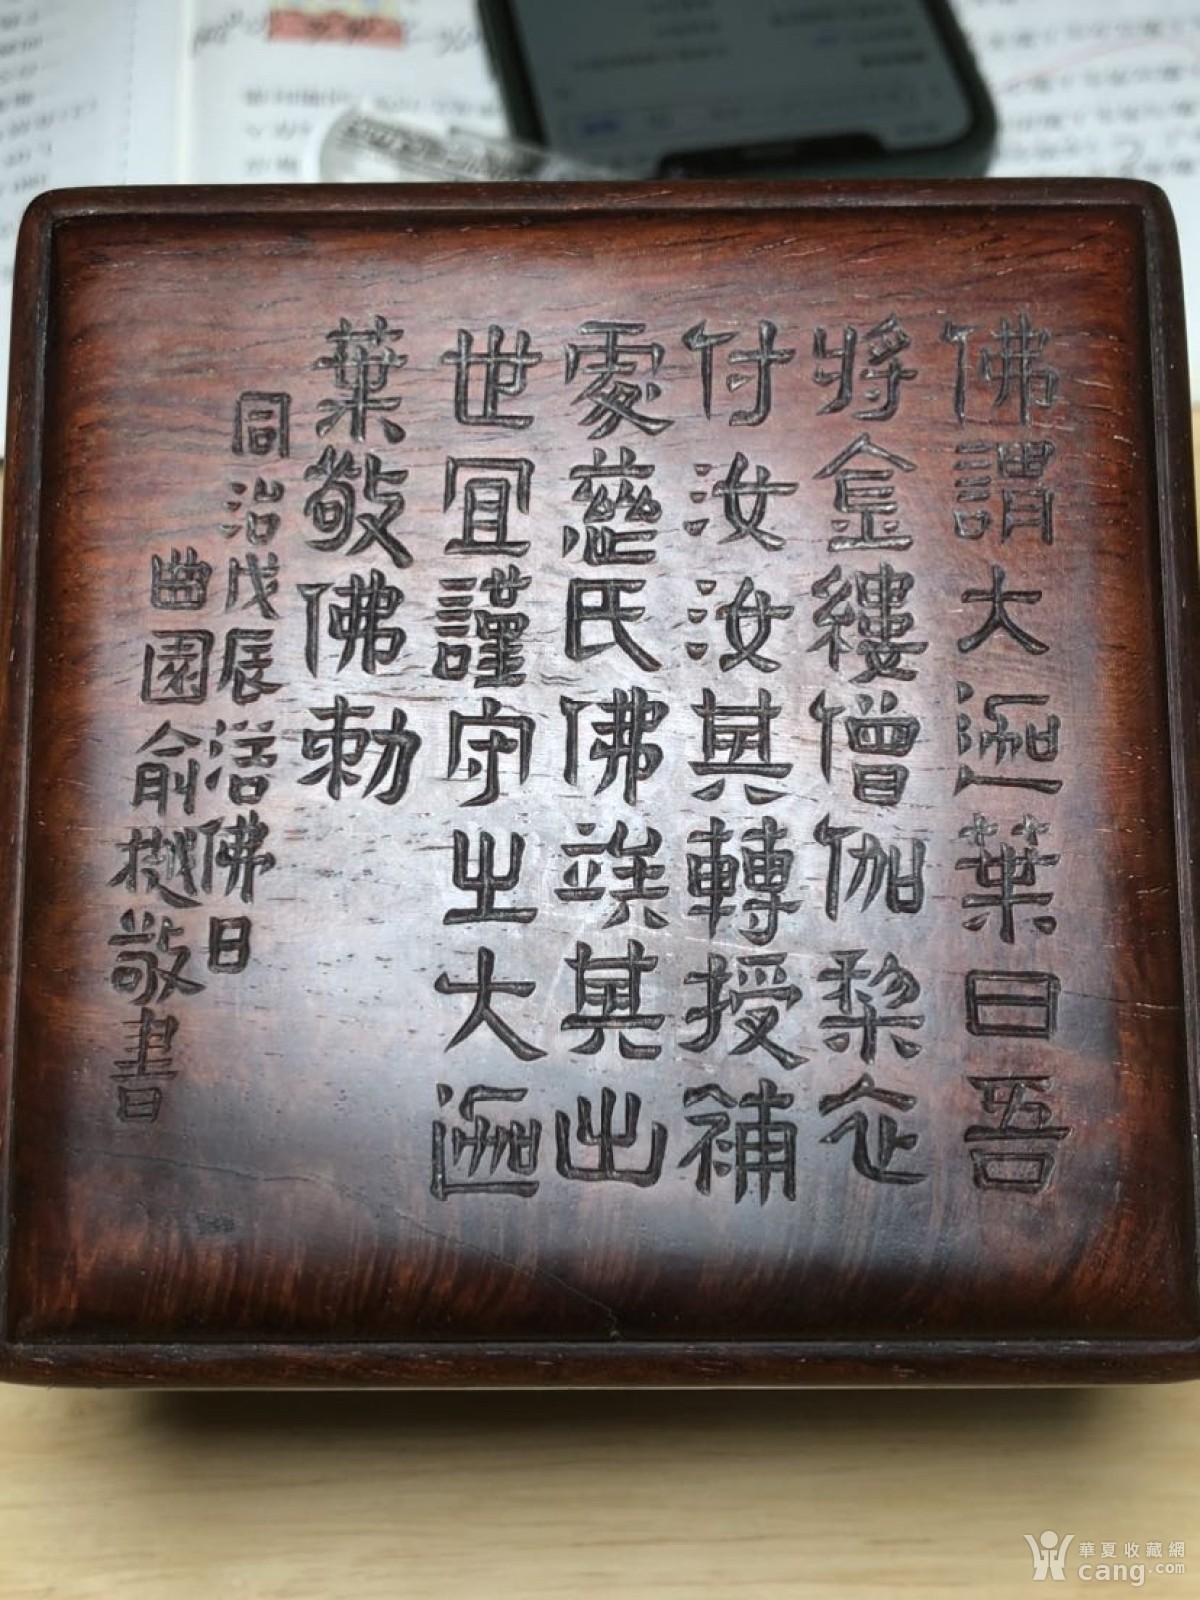 佛謂大迦葉曰吾
將金縷僧伽棃衣
付汝汝其轉授補
處慈氏佛竢其出
世宜謹守之大迦
葉敬佛勅
同治戊辰浴佛日
曲園俞樾敬書
華夏收藏網
cang.com